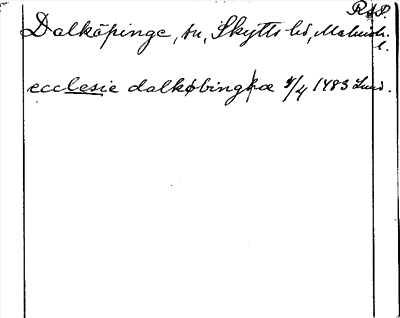 R&P.
Dalköpinge, sn, Skytts hd, Malmöh. l.
ecclesie dalkøbingha 4/4 1483 Lund.